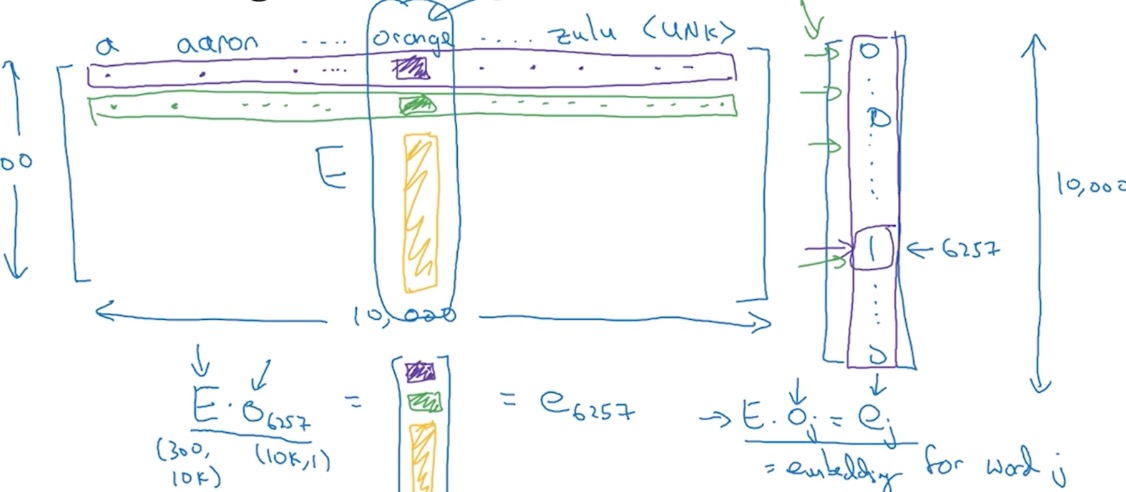 a aaron ..... orange ..... zulu <UNK>
00
E
10,000
0
0
1 ← 6257
0
10,000
E · O6257 = = e6257
(300, 10K) (10K, 1)
→ E · Oj = ej
= embedding for word j